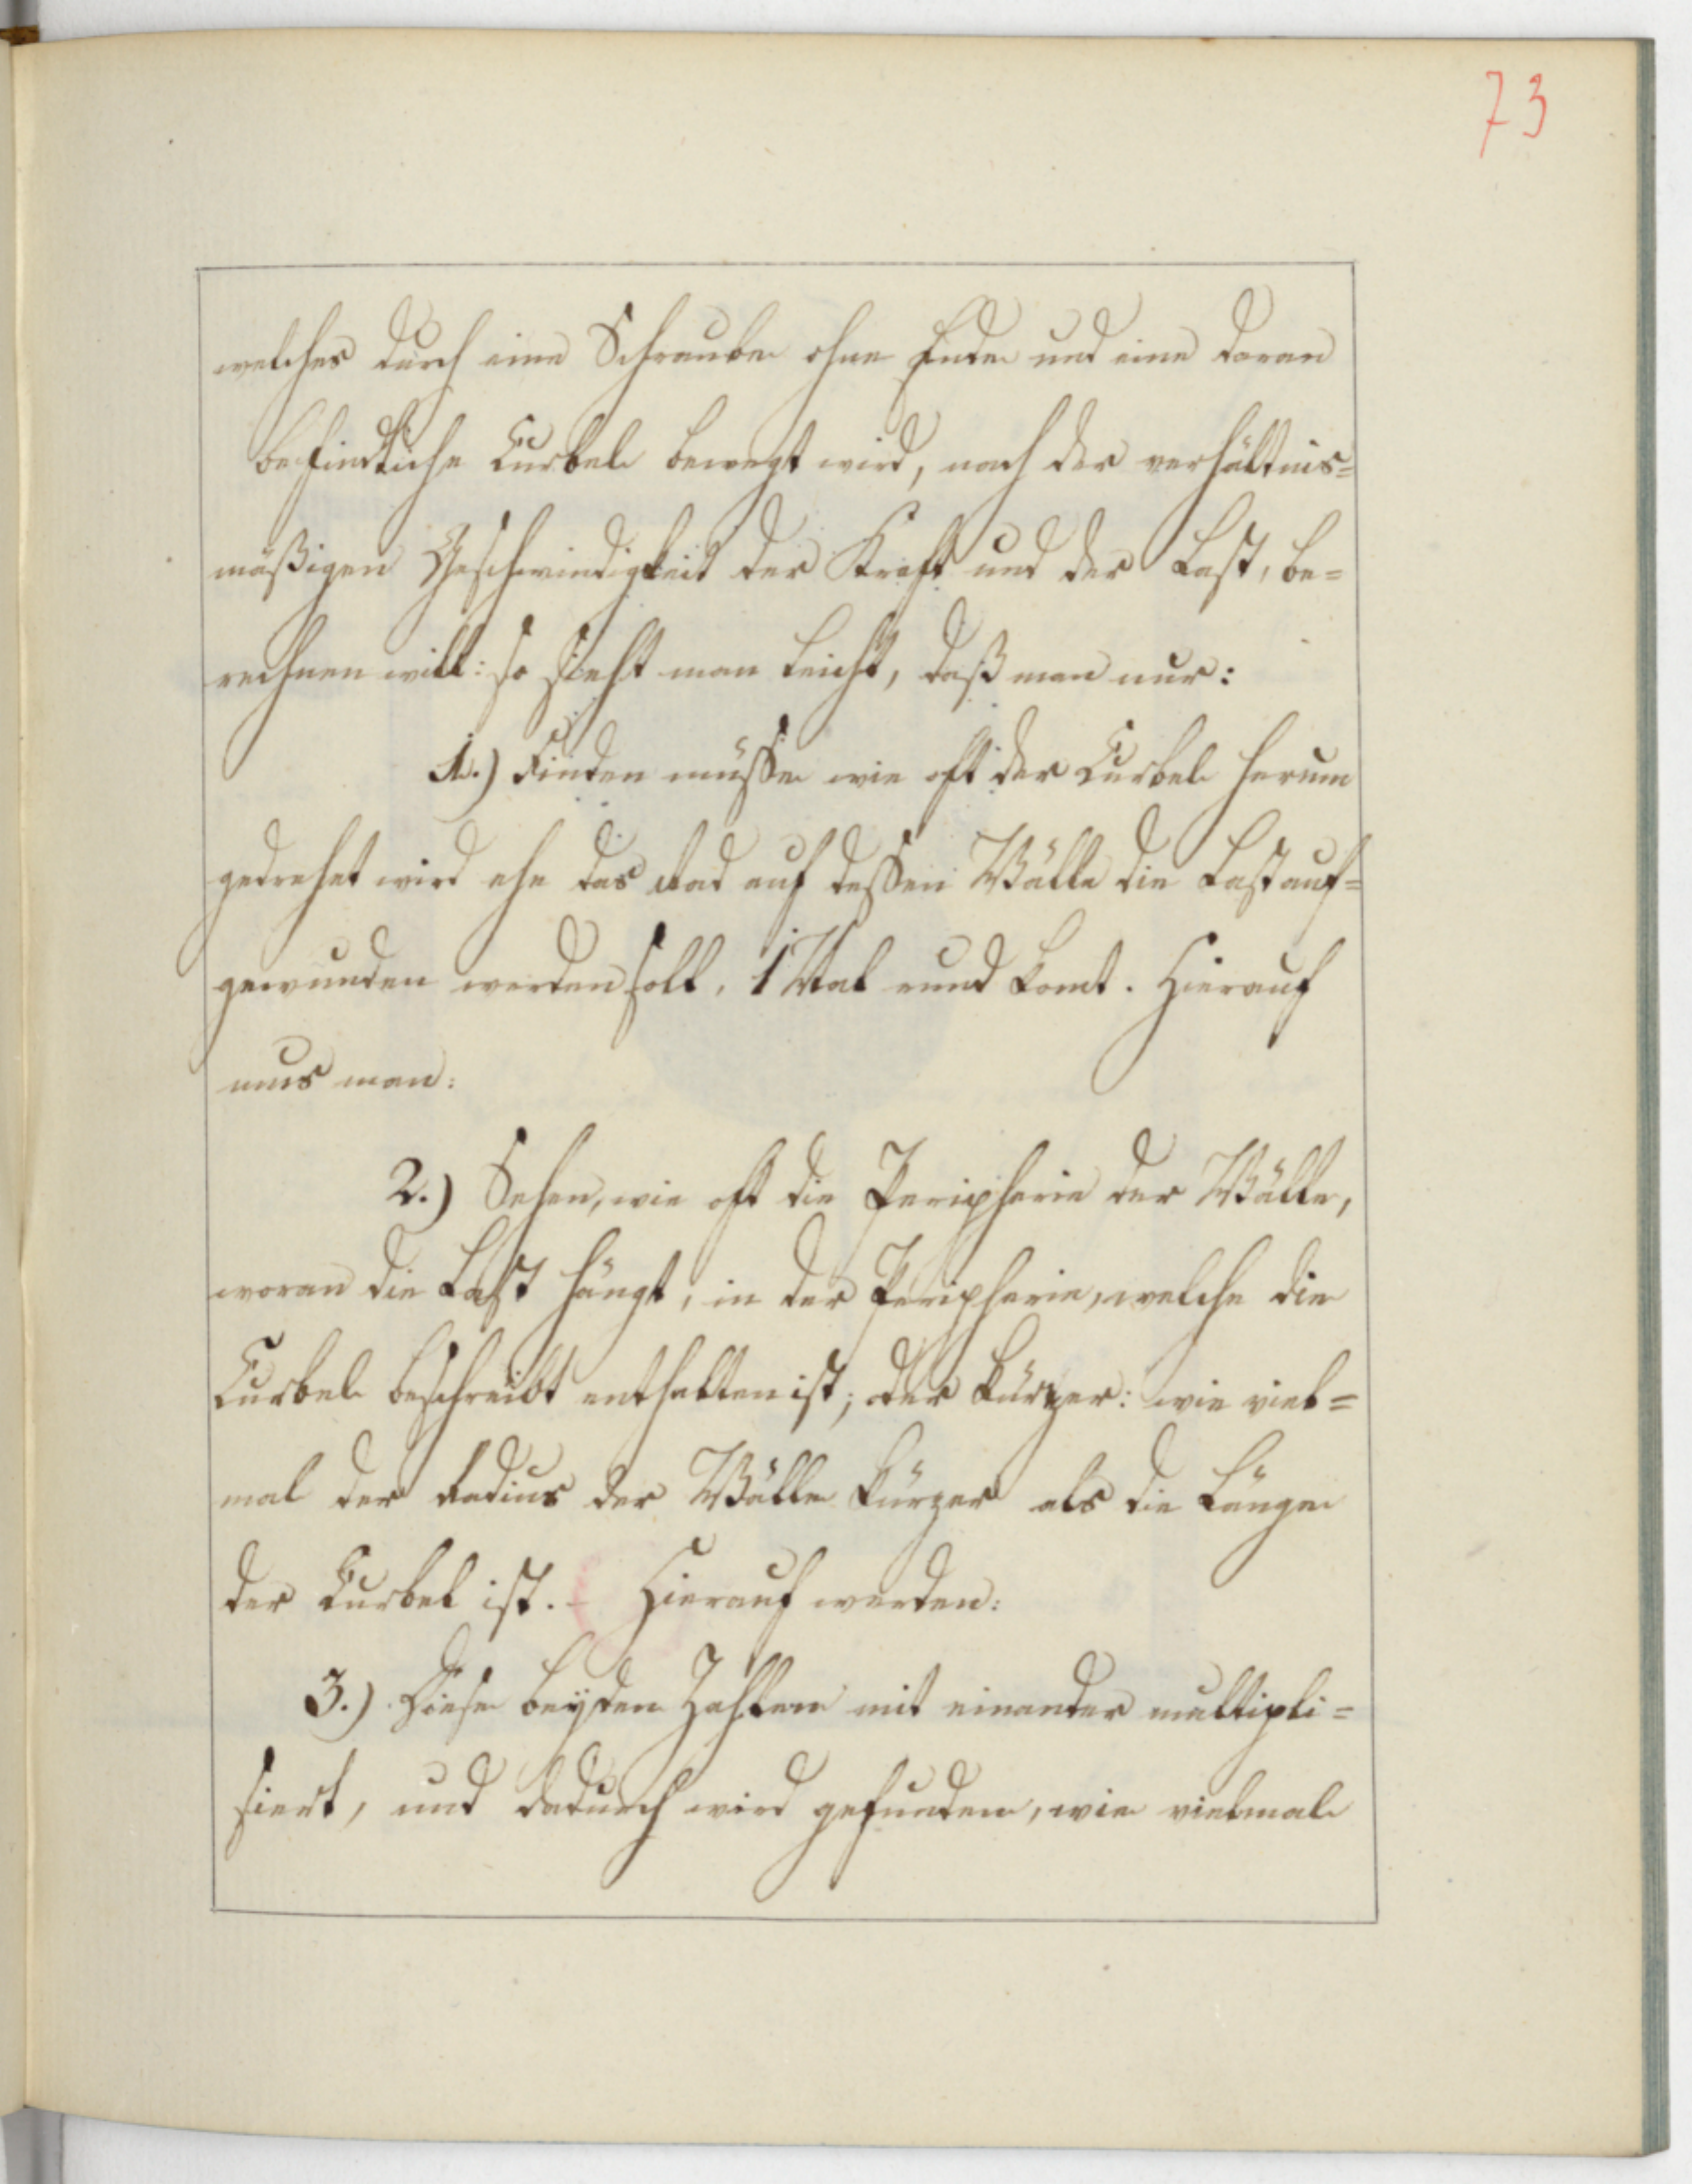 73
welches durch eine Schraube ohne Ende und eine daran
befindliche Curbel bewegt wird, nach der verhältnis=
mäßigen Geschwindigkeit der Kraft und der Last, be=
rechnen will: so sieht man leicht, daß man nur:
1.) Finden müsse wie oft der Curbel herum
gedrehet wird ehe das Rad auf dessen Wälle die Last auf=
gewunden werden soll, 1 Mal rund komt. Hierauf
mus man:
2.) Sehen, wie oft die Peripherie der Wälle,
woran die Last hängt, in der Peripherie, welche die
Curbel beschreibt enthalten ist; oder kürzer: wie viel=
mal der Radius der Wälle kürzer als die Länge
der Curbel ist. - Hierauf werden:
3.) Diese beyden Zahlen mit einander multipli=
siert, und dadurch wird gefunden, wie vielmal